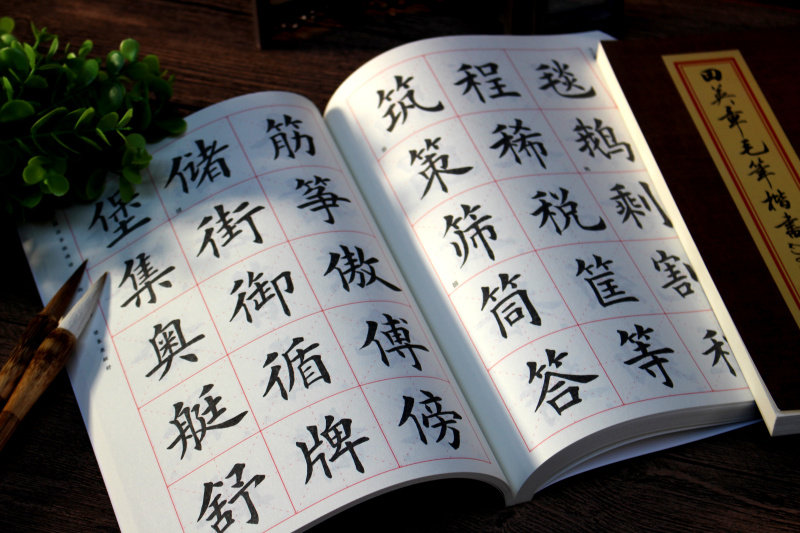 毯鹅剩割
程稀税筐等
筑策筛筒答
筋筝傲傅傍
储街御循牌
堡集奥艇舒
田英章毛笔楷书